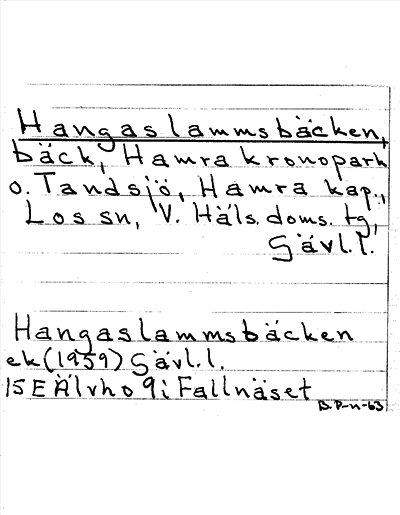 Hangaslammsbäcken,
bäck, Hamra kronopark
o. Tandsjö, Hamra kap.,
Los sn, V. Häls. doms. tg,
Gävl.l.
Hangaslammsbäcken
ek (1959) Gävl.l.
15E Älvho 9i Fallnäset
B.P-n-63